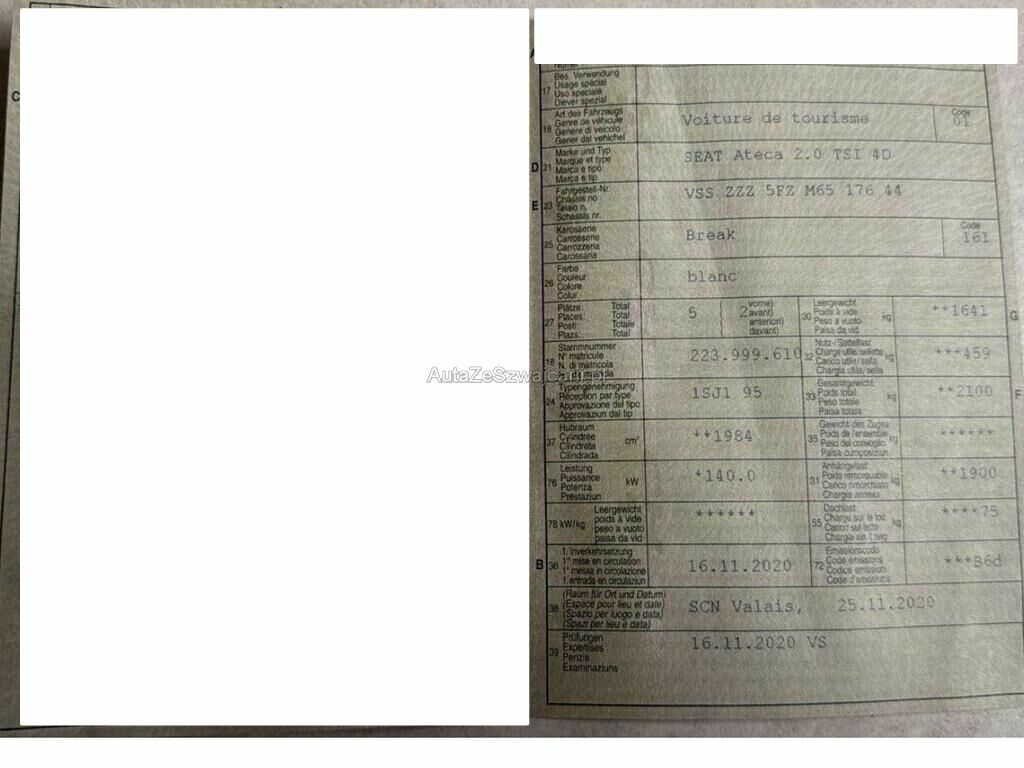 C
17 Bes. Verwendung
Usage spécial
Uso speciale
Diever spezial
19 Art des Fahrzeugs
Genre de véhicule
Genere di veicolo
Gener dal vehichel
Voiture de tourisme
Code
01
D 21 Marke und Typ
Marque et type
Marca e tipo
Marca e tip
SEAT Ateca 2.0 TSI 4D
E 23 Fahrgestell-Nr.
Châssis no
Telaio n.
Schassis nr.
VSS ZZZ 5FZ M65 176 44
25 Karosserie
Carrosserie
Carrozzeria
Carossaria
Break
Code
161
26 Farbe
Couleur
Colore
Colur
blanc
27 Plätze: Total
Places: Total
Posti: Totale
Plazs: Total
5
2 vorne)
avant)
anteriori)
davant)
30 Leergewicht
Poids à vide
Peso a vuoto
Paisa da vid
kg
**1641
G
18 Stammnummer
N° matricule
N. di matricola
223.999.610
32 Nutz-/Sattellast
Charge utile/sellette
Carico utile/sella
Chargia utila/sella
kg
***459
AutaZeSzwajcarii.pl
24 Typengenehmigung
Réception par type
Approvazione del tipo
Approvaziun dal tip
1SJ1 95
33 Gesamtgewicht
Poids total
Peso totale
Paisa totala
kg
**2100
F
37 Hubraum
Cylindrée
Cilindrata
Cilindrada
cm³
**1984
35 Gewicht des Zuges
Poids de l'ensemble
Peso del convoglio
Paisa cumposiziun
kg
******
76 Leistung
Puissance
Potenza
Prestaziun
kW
*140.0
31 Anhängelast
Poids remorquable
Carico rimorchiato
Chargia annexa
kg
**1900
78 kW/kg Leergewicht
poids à vide
peso a vuoto
paisa da vid
******
55 Dachlast
Charge sur le toit
Carico sul tetto
Chargia sin il tetg
kg
****75
B 36 1. Inverkehrsetzung
1re mise en circulation
1a messa in circolazione
1. entrada en circulaziun
16.11.2020
72 Emissionscode
Code émissions
Codice emissioni
Code d'emissiuns
***B6d
38 (Raum für Ort und Datum)
(Espace pour lieu et date)
(Spazio per luogo e data)
(Spazi per lieu e data)
SCN Valais, 25.11.2020
39 Prüfungen
Expertises
Perizie
Examinaziuns
16.11.2020 VS